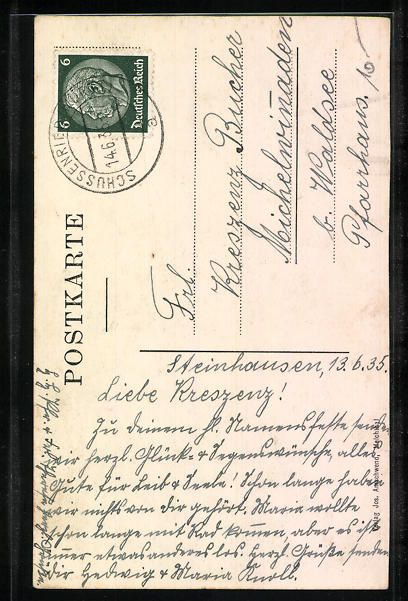 POSTKARTE
6 6
Deutsches Reich
SCHUSSENRIED
14.6.3
a
Frl.
Kreszenz Bucher
Michelwinnaden
b. Waldsee
Pfarrhaus.
Steinhausen, 13.6.35.
Liebe Kreszenz!
Zu deinem hl. Namensfeste senden
wir herzl. Glück- & Segenswünsche, alles
Gute für Leib & Seele! Schon lange haben
wir nichts von dir gehört. Maria wollte
schon lange mit Rad kommen, aber es ist
immer etwas anderes los. Herzl. Grüße senden
dir Hedwig & Maria Knoll.